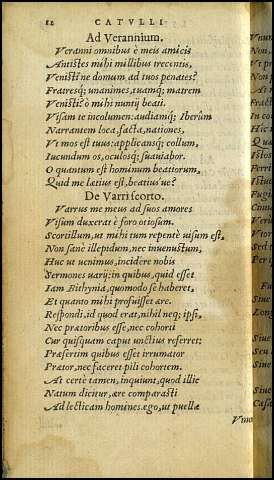 12 CATVLLI
Ad Verannium.
Veranni omnibus è meis amicis
Antistes mihi millibus trecentis,
Venistíne domum ad tuos penates?
Fratresq; unanimes, tuamq; matrem
Venisti? ô mihi nuntij beati.
Visam te incolumen: audiamq; Iberûm
Narrantem loca, facta, nationes,
Vt mos est tuus: applicansq; collum,
Iucundum os, oculosq; suauiabor.
O quantum est hominum beatiorum,
Quid me lætius est, beatius ue?
De Varri scorto.
Varrus me meus ad suos amores
Visum duxerat è foro otiosum.
Scortillum, ut mihi tum repentè uisum est,
Non sanè illepidum, nec inuenustum,
Huc ut uenimus, incidere nobis
Sermones uarij: in quibus, quid esset
Iam Bithynia, quomodo se haberet,
Et quanto mihi profuisset ære.
Respondi, id quod erat, nihil neq; ipsi,
Nec prætoribus esse, nec cohorti
Cur quisquam caput unctius referret:
Præsertim quibus esset irrumator
Prætor, nec faceret pili cohortem.
At certè tamen, inquiunt, quod illic
Natum dicitur, ære comparasti
Ad lecticam homines. ego, ut puellæ
Vnu